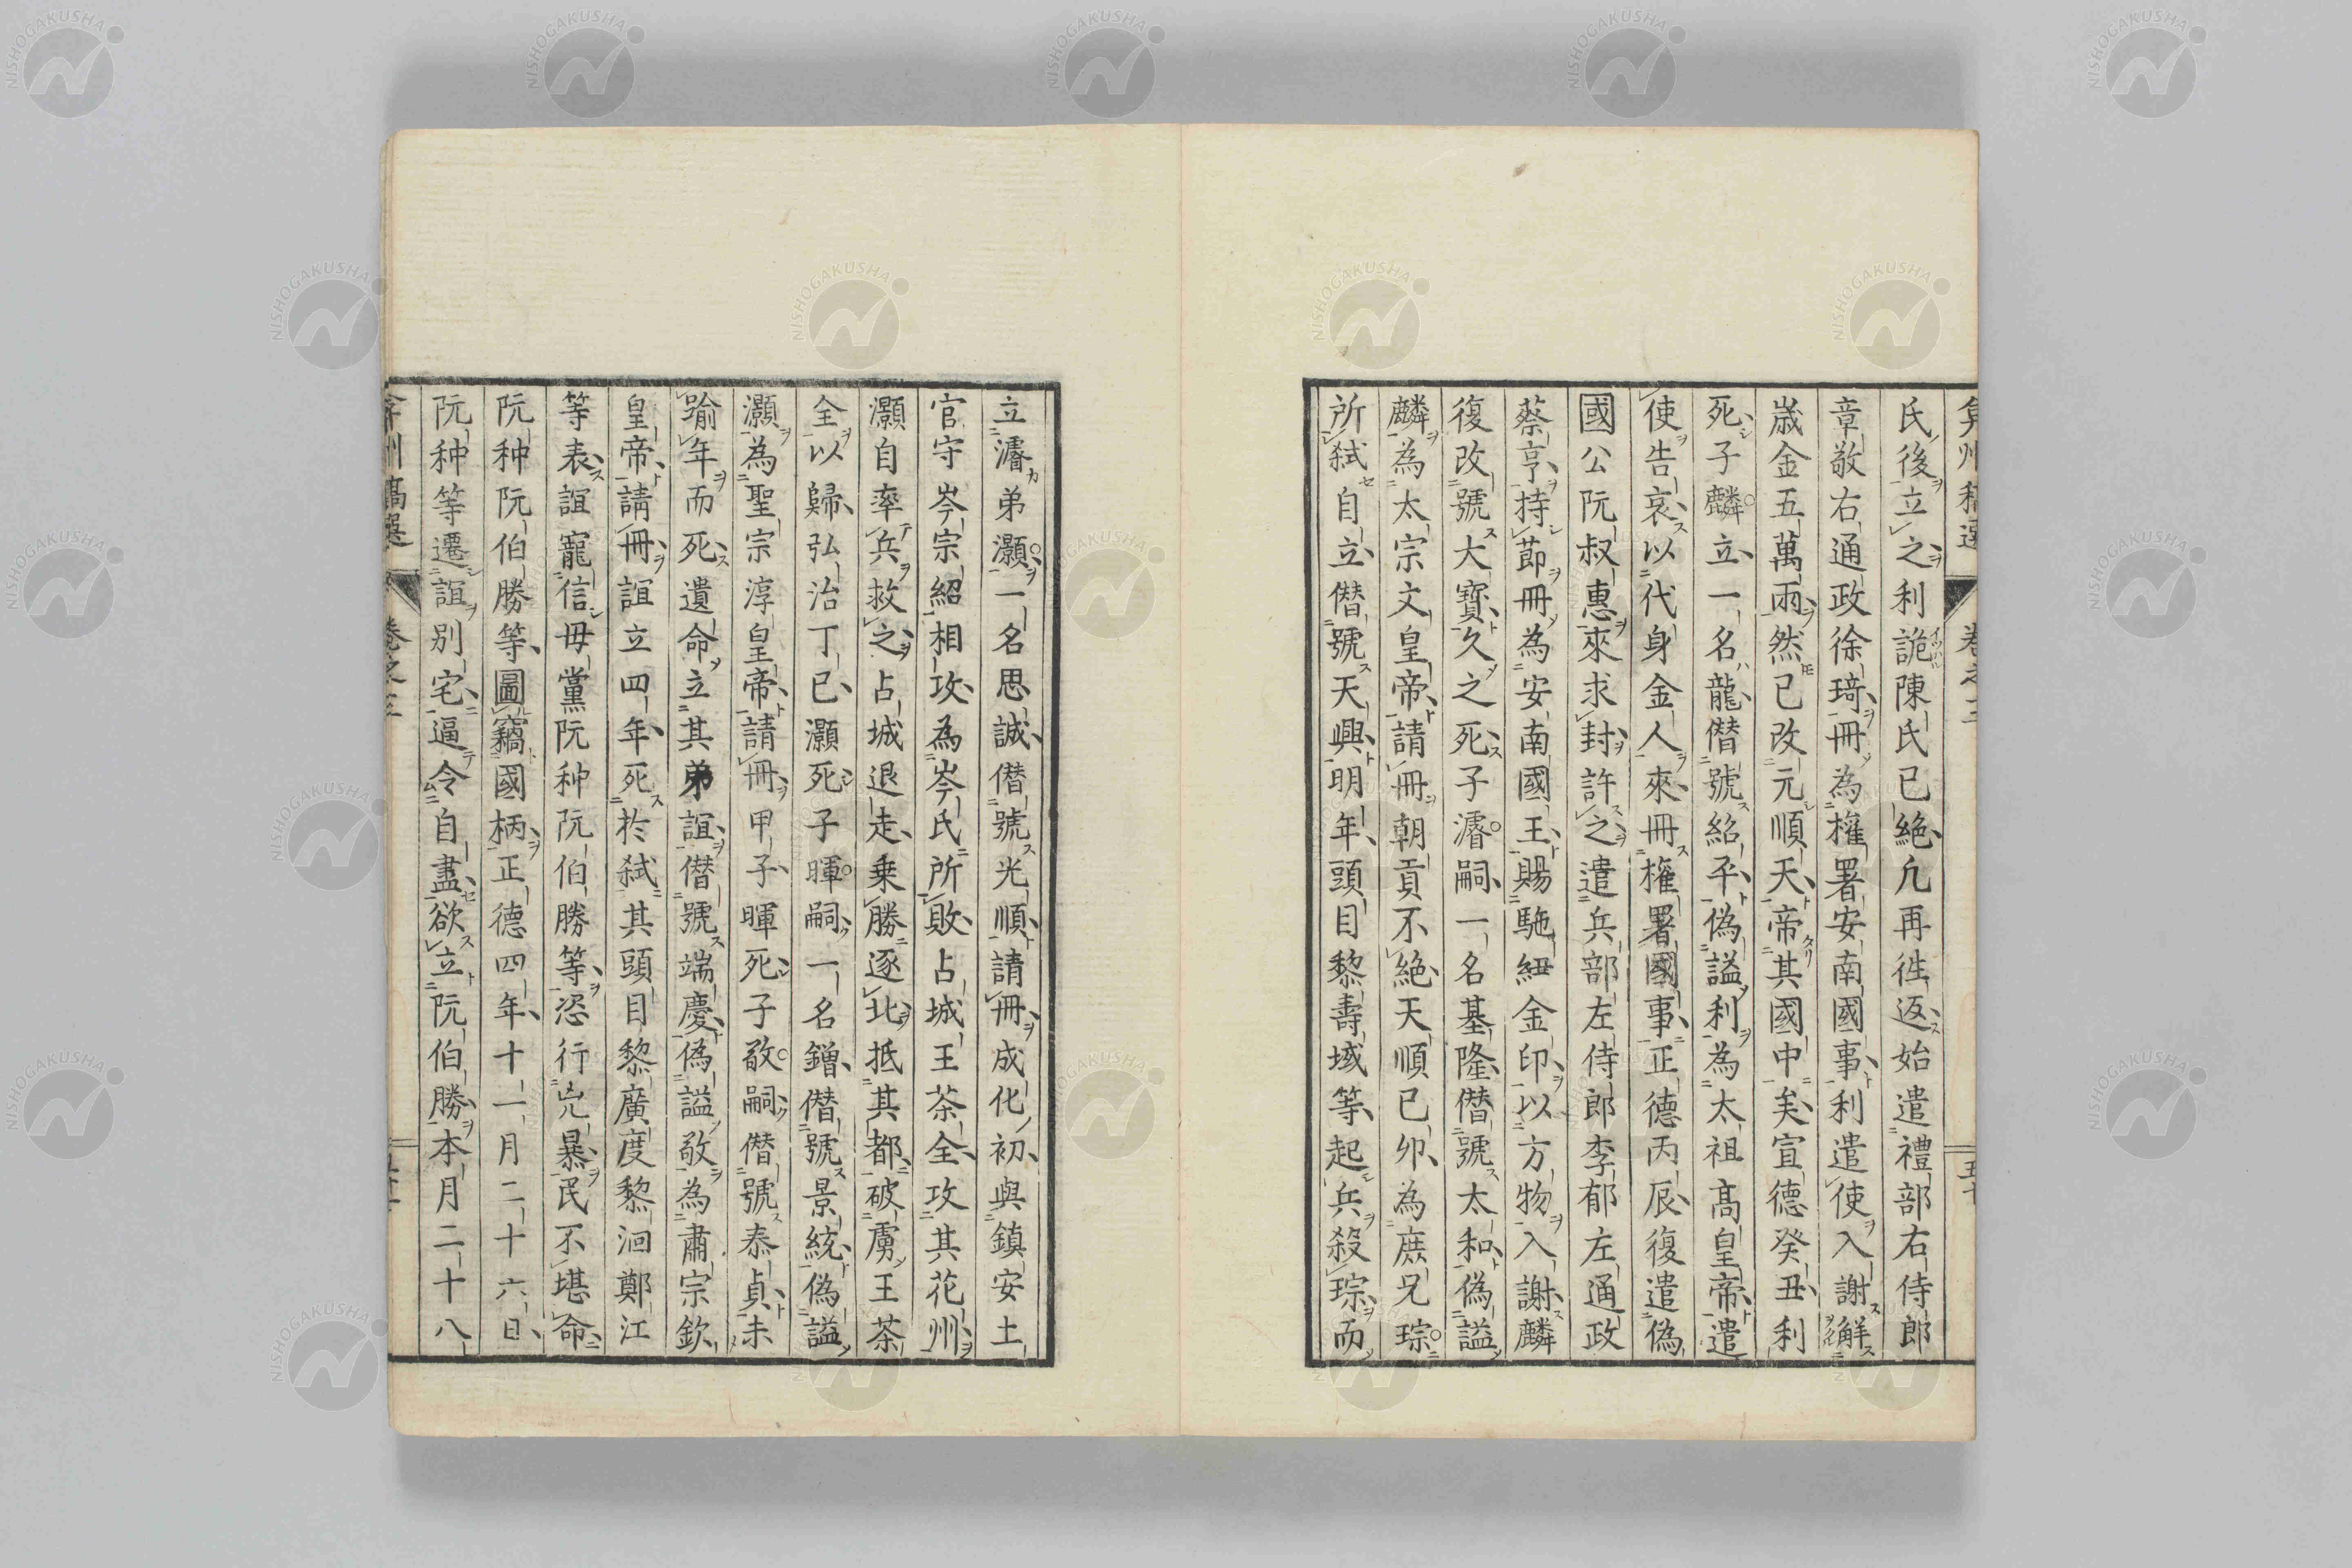 氏後立之利詭陳氏已絶凢再徃返始遣禮部右侍郎
章敬右通政徐琦冊為權署安南國事利遣使入謝解
歳金五萬兩然已改元順天帝其國中矣宣德癸丑利
死子麟立一名龍僭號紹平偽謚利為太祖髙皇帝遣
使告哀以代身金人來冊權署國事正德丙辰復遣偽
國公阮叔惠來求封許之遣兵部左侍郎李郁左通政
蔡亨持節冊為安南國王賜駞紐金印以方物入謝麟
復改號大寳久之死子濬嗣一名基隆僭號太和偽謚
麟為太宗文皇帝請冊朝貢不絶天順已卯為庶兄琮
所弑自立僭號天興明年頭目黎壽域等起兵殺琮而
立濬弟灝一名思誠僭號光順請冊成化初與鎮安土
官守岑宗紹相攻為岑氏所敗占城王茶全攻其花州
灝自率兵救之占城退走乗勝逐北抵其都破虜王茶
全以歸弘治丁已灝死子暉嗣一名鏳僭號景統偽謚
灝為聖宗淳皇帝請冊甲子暉死子敬嗣僭號泰貞未
踰年而死遺命立其弟誼僭號端慶偽謚敬為肅宗欽
皇帝請冊誼立四年死於弑其頭目黎廣度黎洄鄭江
等表誼寵信毋黨阮种阮伯勝等恣行兇暴民不堪命
阮种阮伯勝等圖竊國柄正德四年十一月二十六日
阮种等遷誼別宅逼令自盡欲立阮伯勝本月二十八